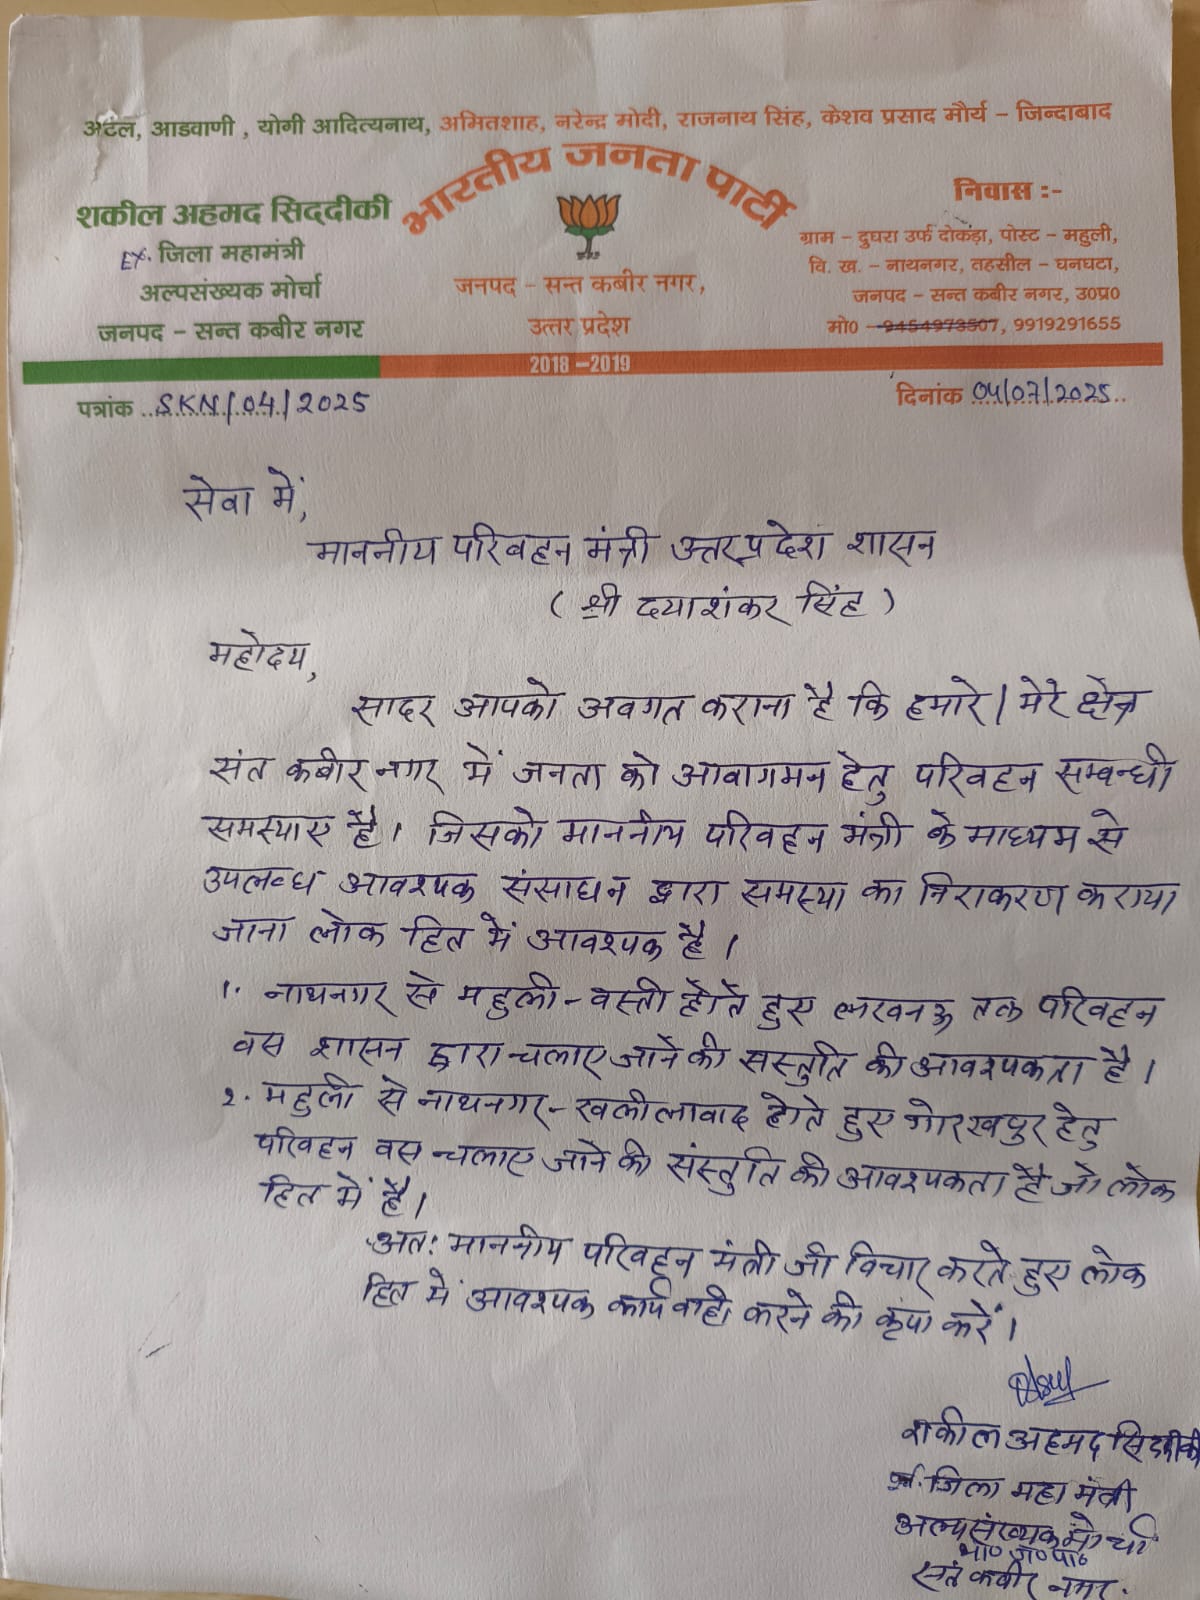 अटल, आडवाणी , योगी आदित्यनाथ, अमितशाह, नरेन्द्र मोदी, राजनाथ सिंह, केशव प्रसाद मौर्य – जिन्दाबाद
भारतीय जनता पार्टी
शकील अहमद सिद्दीकी
Ex. जिला महामंत्री
अल्पसंख्यक मोर्चा
जनपद – सन्त कबीर नगर
जनपद – सन्त कबीर नगर,
उत्तर प्रदेश
निवास :-
ग्राम – दुघरा उर्फ दोकड़ा, पोस्ट – महुली,
वि. ख. – नाथनगर, तहसील – घनघटा,
जनपद – सन्त कबीर नगर, उ०प्र०
मो० – 9454973507, 9919291655
2018 –2019
पत्रांक ..SKN/04/2025
दिनांक 04/07/2025..
सेवा में,
माननीय परिवहन मंत्री उत्तर प्रदेश शासन
( श्री दयाशंकर सिंह )
महोदय,
सादर आपको अवगत कराना है कि हमारे/मेरे क्षेत्र
संत कबीर नगर में जनता को आवागमन हेतु परिवहन सम्बन्धी
समस्याए है। जिसको माननीय परिवहन मंत्री के माध्यम से
उपलब्ध आवश्यक संसाधन द्वारा समस्या का निराकरण कराया
जाना लोक हित में आवश्यक है।
1. नाथनगर से महुली – वस्ती होते हुए लखनऊ तक परिवहन
वस शासन द्वारा चलाए जाने की सस्तुति की आवश्यकता है।
2. महुली से नाथनगर – खलीलावाद होते हुए गोरखपुर हेतु
परिवहन वस चलाए जाने की संस्तुति की आवश्यकता है जो लोक
हित में है।
अत: माननीय परिवहन मंत्री जी विचार करते हुए लोक
हित में आवश्यक कार्यवाही करने की कृपा करें।
शकील अहमद सिद्दीकी
पूर्व. जिला महा मंत्री
अल्पसंख्यक मोर्चा
भा० ज० पा०
संत कबीर नगर.